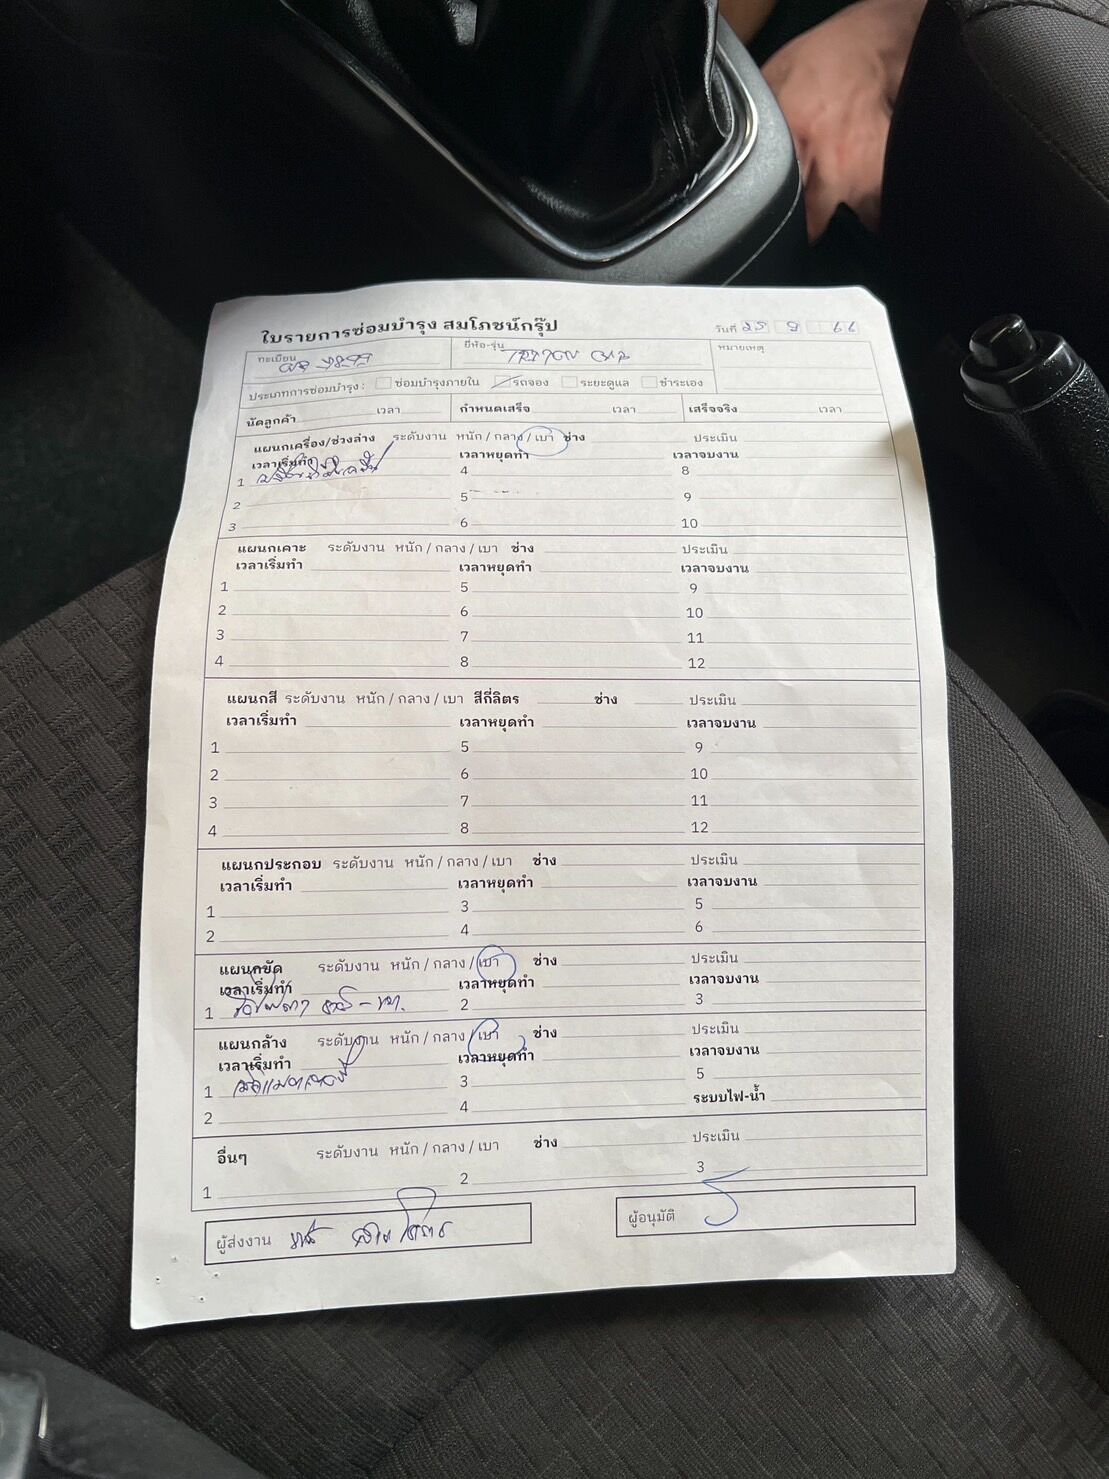 ใบรายการซ่อมบำรุง สมโภชน์กรุ๊ป
วันที่ 25 9 66
ทะเบียน ยี่ห้อ-รุ่น TRITON CAB หมายเหตุ
ประเภทการซ่อมบำรุง : ซ่อมบำรุงภายใน รถจอง ระยะดูแล ชำระเอง
นัดลูกค้า เวลา กำหนดเสร็จ เวลา เสร็จจริง เวลา
แผนกเครื่อง/ช่วงล่าง ระดับงาน หนัก / กลาง / เบา ช่าง ประเมิน
เวลาเริ่มทำ เวลาหยุดทำ เวลาจบงาน
1 4 8
2 5 9
3 6 10
แผนกเคาะ ระดับงาน หนัก / กลาง / เบา ช่าง ประเมิน
เวลาเริ่มทำ เวลาหยุดทำ เวลาจบงาน
1 5 9
2 6 10
3 7 11
4 8 12
แผนกสี ระดับงาน หนัก / กลาง / เบา สีกี่ลิตร ช่าง ประเมิน
เวลาเริ่มทำ เวลาหยุดทำ เวลาจบงาน
1 5 9
2 6 10
3 7 11
4 8 12
แผนกประกอบ ระดับงาน หนัก / กลาง / เบา ช่าง ประเมิน
เวลาเริ่มทำ เวลาหยุดทำ เวลาจบงาน
1 3 5
2 4 6
แผนกขัด ระดับงาน หนัก / กลาง / เบา ช่าง ประเมิน
เวลาเริ่มทำ เวลาหยุดทำ เวลาจบงาน
1 2 3
แผนกล้าง ระดับงาน หนัก / กลาง / เบา ช่าง ประเมิน
เวลาเริ่มทำ เวลาหยุดทำ เวลาจบงาน
1 3 5
2 4 ระบบไฟ-น้ำ
อื่นๆ ระดับงาน หนัก / กลาง / เบา ช่าง ประเมิน
1 2 3
ผู้ส่งงาน ผู้อนุมัติ